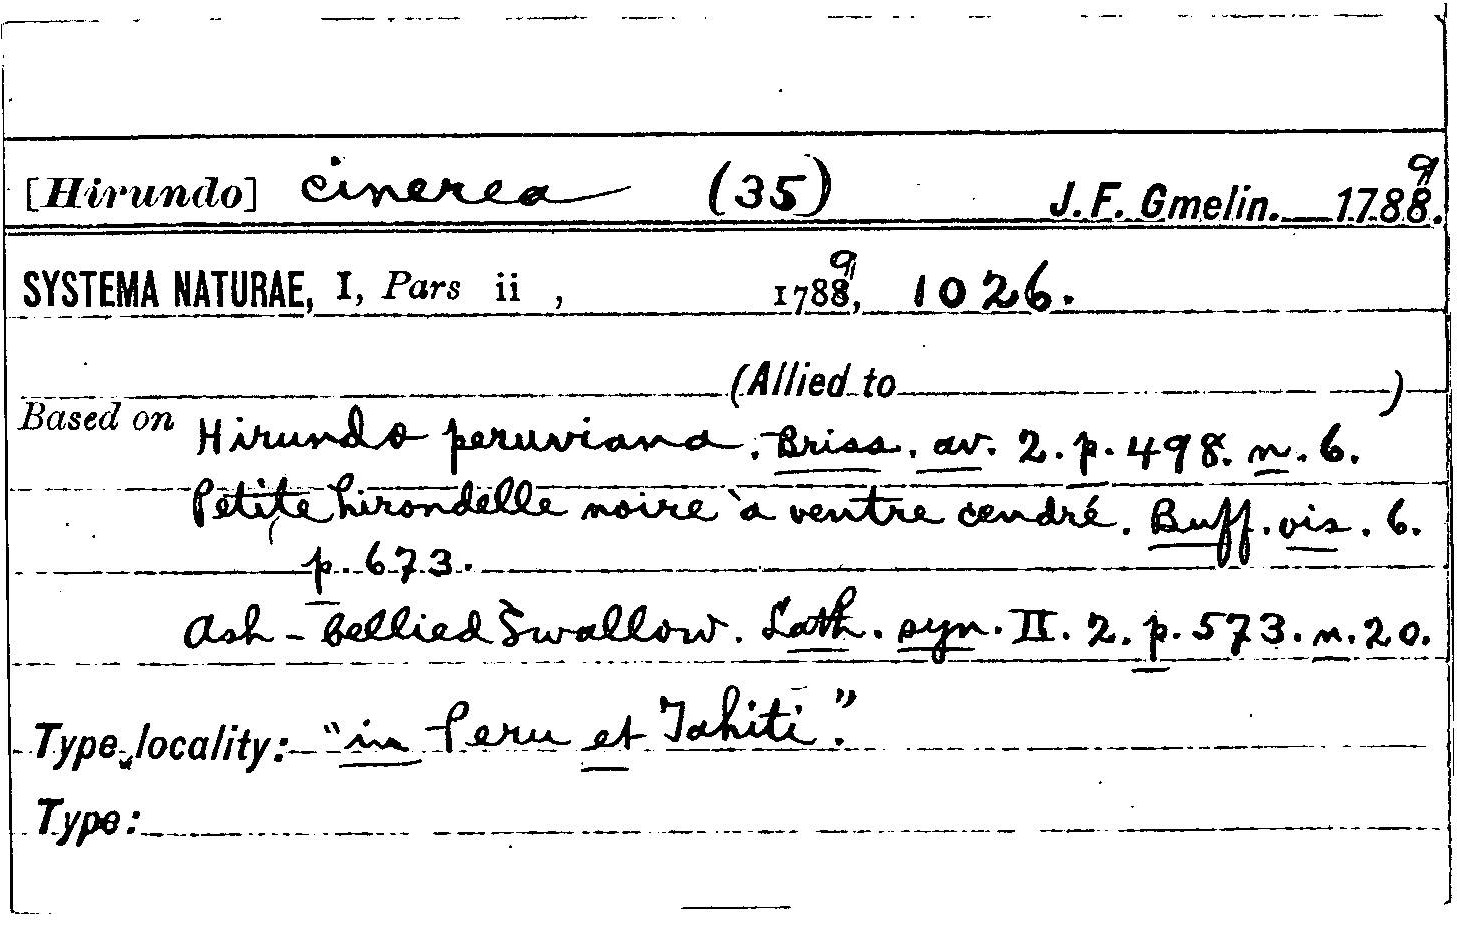 [Hirundo] cinerea (35) J. F. Gmelin. 1789.
SYSTEMA NATURAE, I, Pars ii , 1789, 1026.
(Allied to )
Based on Hirundo peruviana. Briss. av. 2. p. 498. n. 6.
Petite hirondelle noire à ventre cendré. Buff. ois. 6.
p. 673.
Ash-bellied Swallow. Lath. syn. II. 2. p. 573. n. 20.
Type locality: "in Peru et Tahiti."
Type: